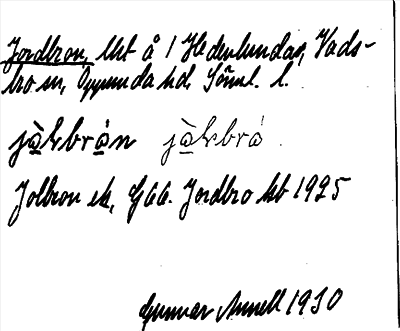 Jordbron, lht å 1 Hedenlundas, Vads-
bro sn, Oppunda hd. Söml. l.
jàkbrån jàkbrå
Jolbron ek, G66. Jordbro hb 1925
Gunnar Annell 1930